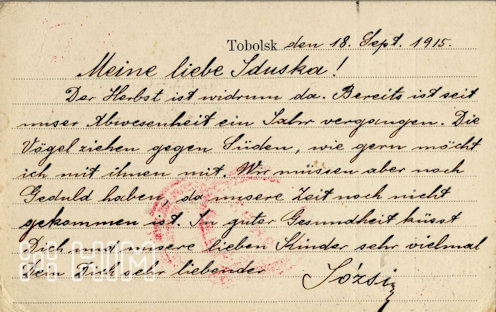 Tobolsk den 18. Sept. 1915.
Meine liebe Iduska!
Der Herbst ist widrum da. Bereits ist seit
unser Abwesenheit ein Jahr vergangen. Die
Vögel ziehen gegen Süden, wie gern möcht
ich mit ihnen mit. Wir müssen aber noch
Geduld haben, da unsere Zeit noch nicht
gekommen ist. In guter Gesundheit küsst
Dich und unsere lieben Kinder sehr vielmal
dein Dich sehr liebender Józsi
HIM